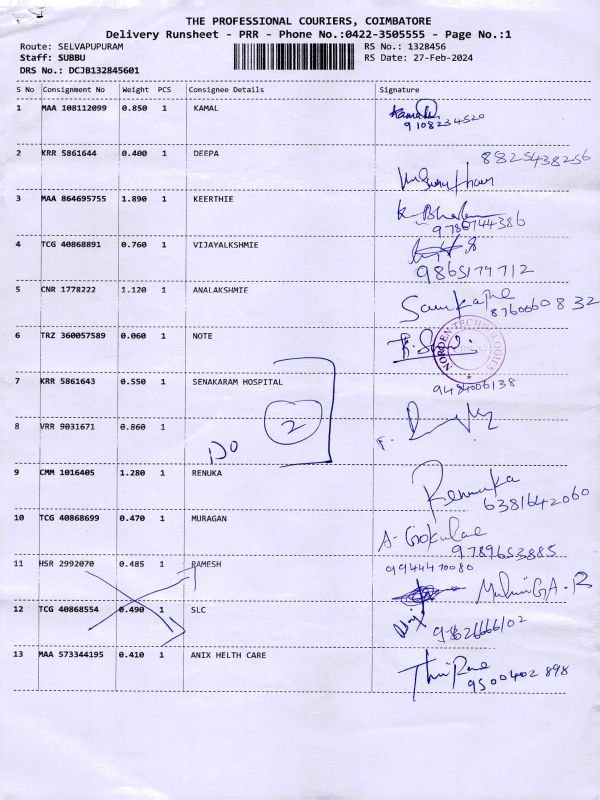 THE PROFESSIONAL COURIERS, COIMBATORE
Delivery Runsheet - PRR - Phone No.:0422-3505555 - Page No.:1
Route: SELVAPUPURAM
RS No.: 1328456
Staff: SUBBU
RS Date: 27-Feb-2024
DRS No.: DCJB132845601
S No Consignment No Weight PCS Consignee Details Signature
1 MAA 108112099 0.850 1 KAMAL
9108234520
2 KRR 5861644 0.400 1 DEEPA
8825438256
3 MAA 864695755 1.890 1 KEERTHIE
4 TCG 40868891 0.760 1 VIJAYALKSHMIE
9865179712
5 CNR 1778222 1.120 1 ANALAKSHMIE
8760060832
6 TRZ 360057589 0.060 1 NOTE
NORDEN TECHNOLOGIES
7 KRR 5861643 0.550 1 SENAKARAM HOSPITAL
9484006138
8 VRR 9031671 0.860 1
DO 2
9 CMM 1016405 1.280 1 RENUKA
Rennuka
6381642060
10 TCG 40868699 0.470 1 MURAGAN
A-Gokulae
9789653885
11 HSR 2992070 0.485 1 RAMESH
9944470080
12 TCG 40868554 0.490 1 SLC
13 MAA 573344195 0.410 1 ANIX HELTH CARE
9500402898